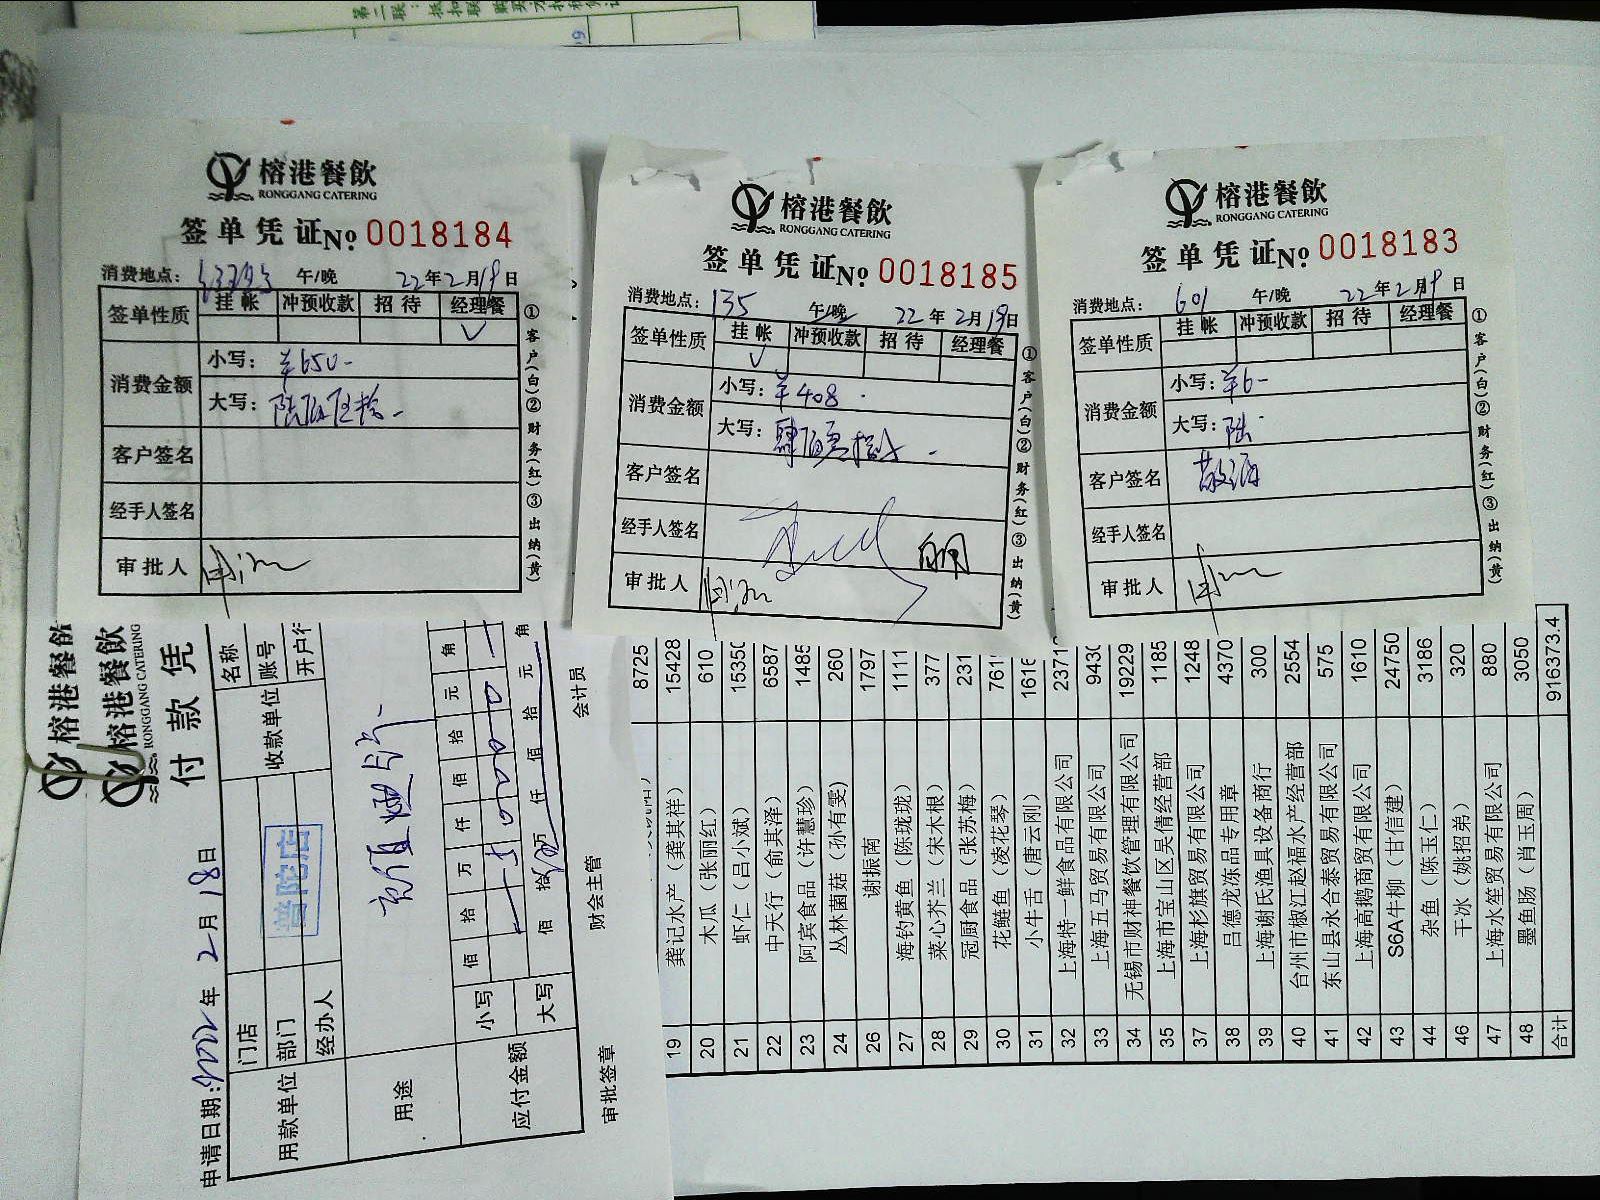 榕港餐飲
RONGGANG CATERING
签单凭证 No. 0018184
消费地点： 午/晚 22年2月19日
签单性质 挂帐 冲预收款 招待 经理餐
✓
消费金额 小写：¥650-
大写：陆佰伍拾-
客户签名
经手人签名
审批人
①客户(白)②财务(红)③出纳(黄)
榕港餐飲
RONGGANG CATERING
签单凭证 No. 0018185
消费地点：135 午/晚 22年2月19日
签单性质 挂帐 冲预收款 招待 经理餐
✓
消费金额 小写：¥408.
大写：肆佰零捌
客户签名
经手人签名
审批人
①客户(白)②财务(红)③出纳(黄)
榕港餐飲
RONGGANG CATERING
签单凭证 No. 0018183
消费地点：601 午/晚 22年2月19日
签单性质 挂帐 冲预收款 招待 经理餐
消费金额 小写：¥6-
大写：陆
客户签名
经手人签名
审批人
①客户(白)②财务(红)③出纳(黄)
榕港餐飲
榕港餐飲
RONGGANG CATERING
付款凭
申请日期：2022年2月18日
用款单位 门店 收款单位 名称
部门 账号
经办人 开户行
普陀店
用途
应付金额 小写 佰 拾 万 仟 佰 拾 元 角
大写 佰 拾 万 仟 佰 拾 元 角
审批签章 财会主管 会计员
8725
19 龚记水产（龚其祥） 15428
20 木瓜（张丽红） 610
21 虾仁（吕小斌） 15350
22 中天行（俞其泽） 6587
23 阿宾食品（许慧珍） 1485
24 丛林菌菇（孙有雯） 260
26 谢振南 1797
27 海钓黄鱼（陈珑珑） 1111
28 菜心芥兰（宋木根） 377
29 冠厨食品（张苏梅） 231
30 花鲢鱼（凌花琴） 761
31 小牛舌（唐云刚） 1616
32 上海特一鲜食品有限公司 2371
33 上海五马贸易有限公司 943
34 无锡市财神餐饮管理有限公司 19229
35 上海市宝山区吴倩经营部 1185
37 上海杉旗贸易有限公司 1248
38 吕德龙冻品专用章 4370
39 上海谢氏渔具设备商行 300
40 台州市椒江赵福水产经营部 2554
41 东山县永合泰贸易有限公司 575
42 上海高鹅商贸有限公司 1610
43 S6A牛柳（甘信建） 24750
44 杂鱼（陈玉仁） 3186
46 干冰（姚招弟） 320
47 上海水笙贸易有限公司 880
48 墨鱼肠（肖玉周） 3050
合计 916373.4